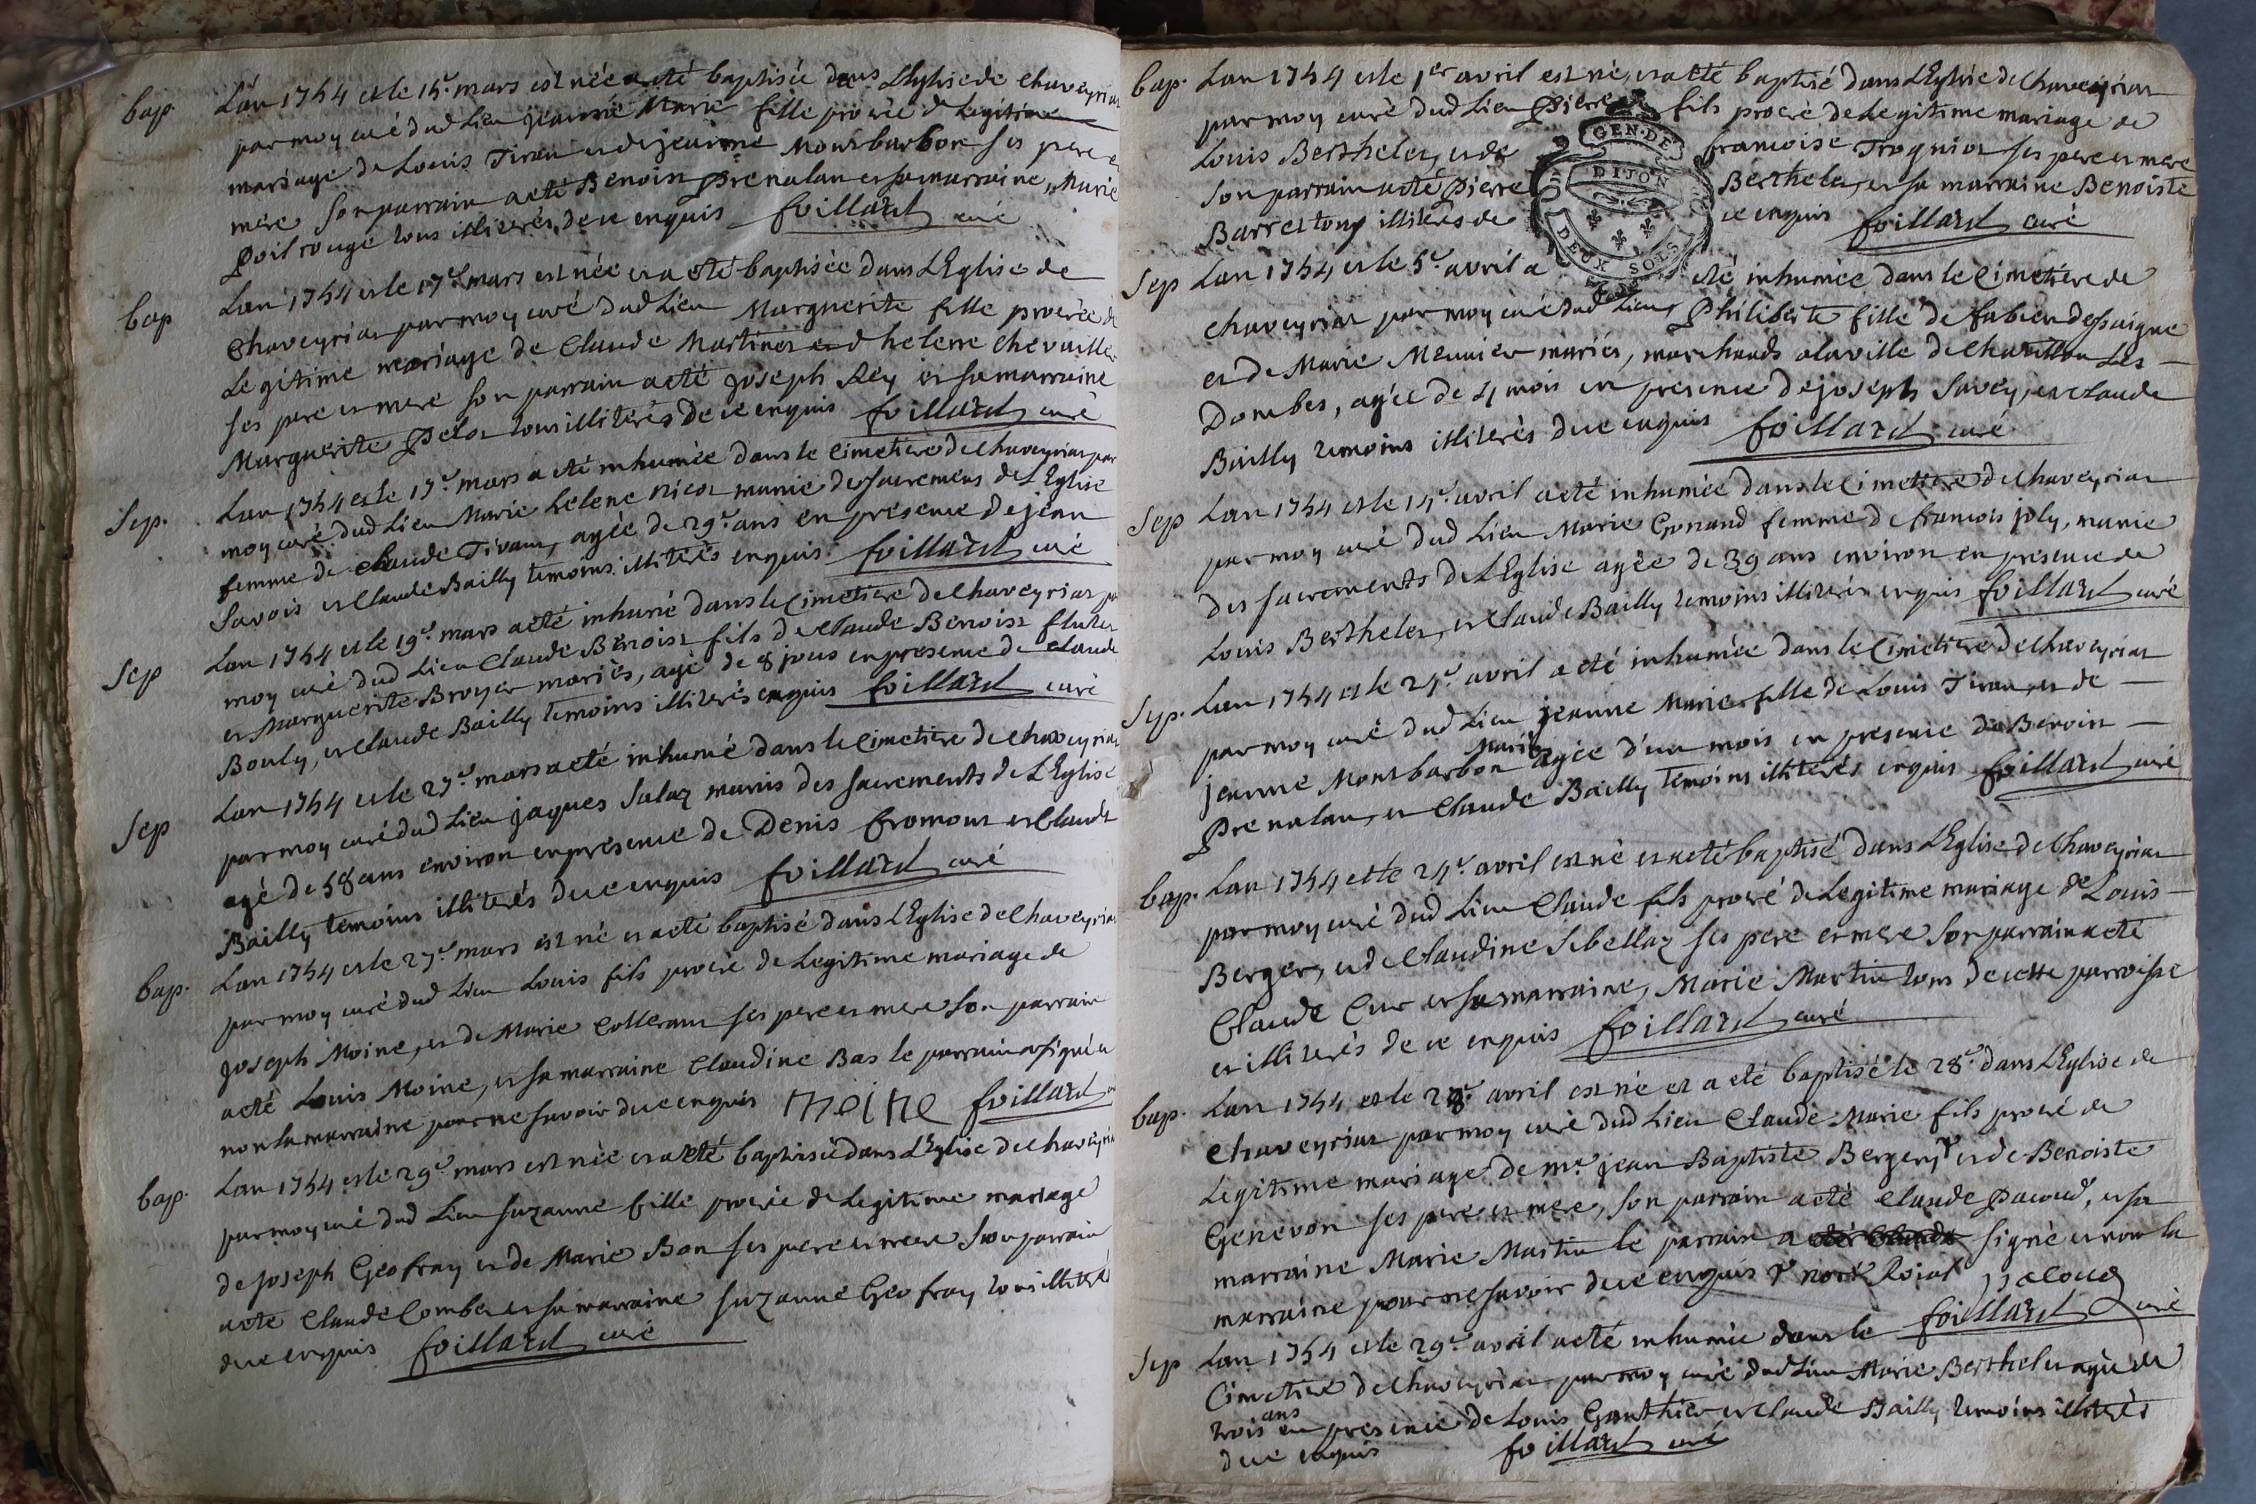 bap. Lan 1754 et le 15e. mars est née et a eté baptisée dans L'Eglise de Chaveyriat
par moy curé dud Lieu jeanne Marie fille procréé de Legitime
mariage de Louis Tiran et de jeanne Montbarbon ses pere et
mere son parrain a eté Benoist Prenalan et sa marraine Marie
Poil rouge tous illiterés, de ce enquis foillard curé
bap Lan 1754 et le 17e. mars est née et a eté baptisée dans L'Eglise de
Chaveyriat par moy curé dud Lieu Marguerite fille procréé de
Legitime mariage de Claude Martinet et d'helene chevailler
ses pere et mere son parrain a eté joseph Rey et sa marraine
Marguerite Pelot tous illiterés de ce enquis foillard curé
Sep. Lan 1754 et le 17e. mars a eté inhumée dans le Cimetiere de Chaveyriat par
moy curé dud Lieu Marie helene nicot munie des sacremens de L'Eglise
femme de claude Tivant, agée de 29e. ans en presence de jean
Savois et Claude Bailly temoins illiterés enquis foillard curé
Sep Lan 1754 et le 19e. mars a eté inhumé dans le Cimetiere de Chaveyriat par
moy curé dud Lieu Claude Benoist fils de Claude Benoist
et Marguerite Broyer mariés, agé de 8 jours en presence de Claude
Bouly, et Claude Bailly temoins illiterés enquis foillard curé
Sep Lan 1754 et le 27e. mars a eté inhumé dans le Cimetiere de Chaveyriat
par moy curé dud Lieu jaques Salaz munis des sacrements de L'Eglise
agé de 58 ans environ en presence de Denis fromont et Claude
Bailly temoins illiterés de ce enquis foillard curé
bap. Lan 1754 et le 27e. mars est né et a eté baptisé dans L'Eglise de Chaveyriat
par moy curé dud Lieu Louis fils procréé de Legitime mariage de
joseph Moine, et de Marie Colleram ses pere et mere son parrain
a eté Louis Moine, et sa marraine Claudine Bas le parrain a signé et
non la marraine pour ne savoir de ce enquis Moine foillard
bap. Lan 1754 et le 29e. mars est née et a eté baptisée dans L'Eglise de Chaveyriat
par moy curé dud Lieu suzanne fille procréé de Legitime mariage
de joseph Geofray et de Marie Bon ses pere et mere son parrain
a eté Claude Combet et sa marraine suzanne Geofray tous illiterés
de ce enquis foillard curé
bap. Lan 1754 et le 1er avril est né, et a eté baptisé dans L'Eglise de Chaveyriat
par moy curé dud Lieu Pierre fils procréé de Legitime mariage de
Louis Berthelet, et de francoise Trogniot ses pere et mere
son parrain a eté Pierre Berthelet, et sa marraine Benoiste
Barret tous illiterés de ce enquis foillard curé
GEN. DE
DIJON
DEUX SOLS
Sep Lan 1754 et le 5e. avril a eté inhumée dans le Cimetiere de
Chaveyriat par moy curé dud Lieu, Philiberte fille de fabien dessaigne
et de Marie Meunier mariés, marchands a la ville de Chatillon Les
Dombes, agée de 4 mois en presence de joseph Savey, et Claude
Bailly temoins illiterés de ce enquis foillard curé
Sep Lan 1754 et le 14e. avril a eté inhumée dans le Cimetiere de Chaveyriat
par moy curé dud Lieu Marie Gonand femme de francois joly, munie
des sacrements de L'Eglise agée de 39 ans environ en presence de
Louis Berthelet, et Claude Bailly temoins illiterés enquis foillard curé
Sep. Lan 1754 et le 24e. avril a eté inhumée dans le Cimetiere de Chaveyriat
par moy curé dud Lieu jeanne Marie fille de Louis Tiran, et de
jeanne Montbarbon mariés agée d'un mois en presence de Benoit
Prenalan, et Claude Bailly temoins illiterés enquis foillard curé
bap. Lan 1754 et le 24e. avril est né et a eté baptisé dans L'Eglise de Chaveyriat
par moy curé dud Lieu Claude fils procréé de Legitime mariage de Louis
Berger, et de Claudine Sebellaz ses pere et mere son parrain a eté
Claude Cur et sa marraine, Marie Martin tous de cette parroisse
et illiterés de ce enquis foillard curé
bap. Lan 1754 et le 28e. avril est né et a eté baptisé le 28e. dans L'Eglise de
Chaveyriat par moy curé dud Lieu Claude Marie fils procréé de
Legitime mariage de me. jean Baptiste Berger et de Benoiste
Genevon ses pere et mere, son parrain a eté Claude Pacoud, et sa
marraine Marie Martin le parrain a signé et non la
marraine pour ne savoir de ce enquis nore Roial pacoud
foillard curé
Sep Lan 1754 et le 29e. avril a eté inhumée dans le
Cimetiere de Chaveyriat par moy curé dud Lieu Marie Berthelet agée de
trois ans en presence de Louis Gonthier et Claude Bailly temoins illiterés
de ce enquis foillard curé